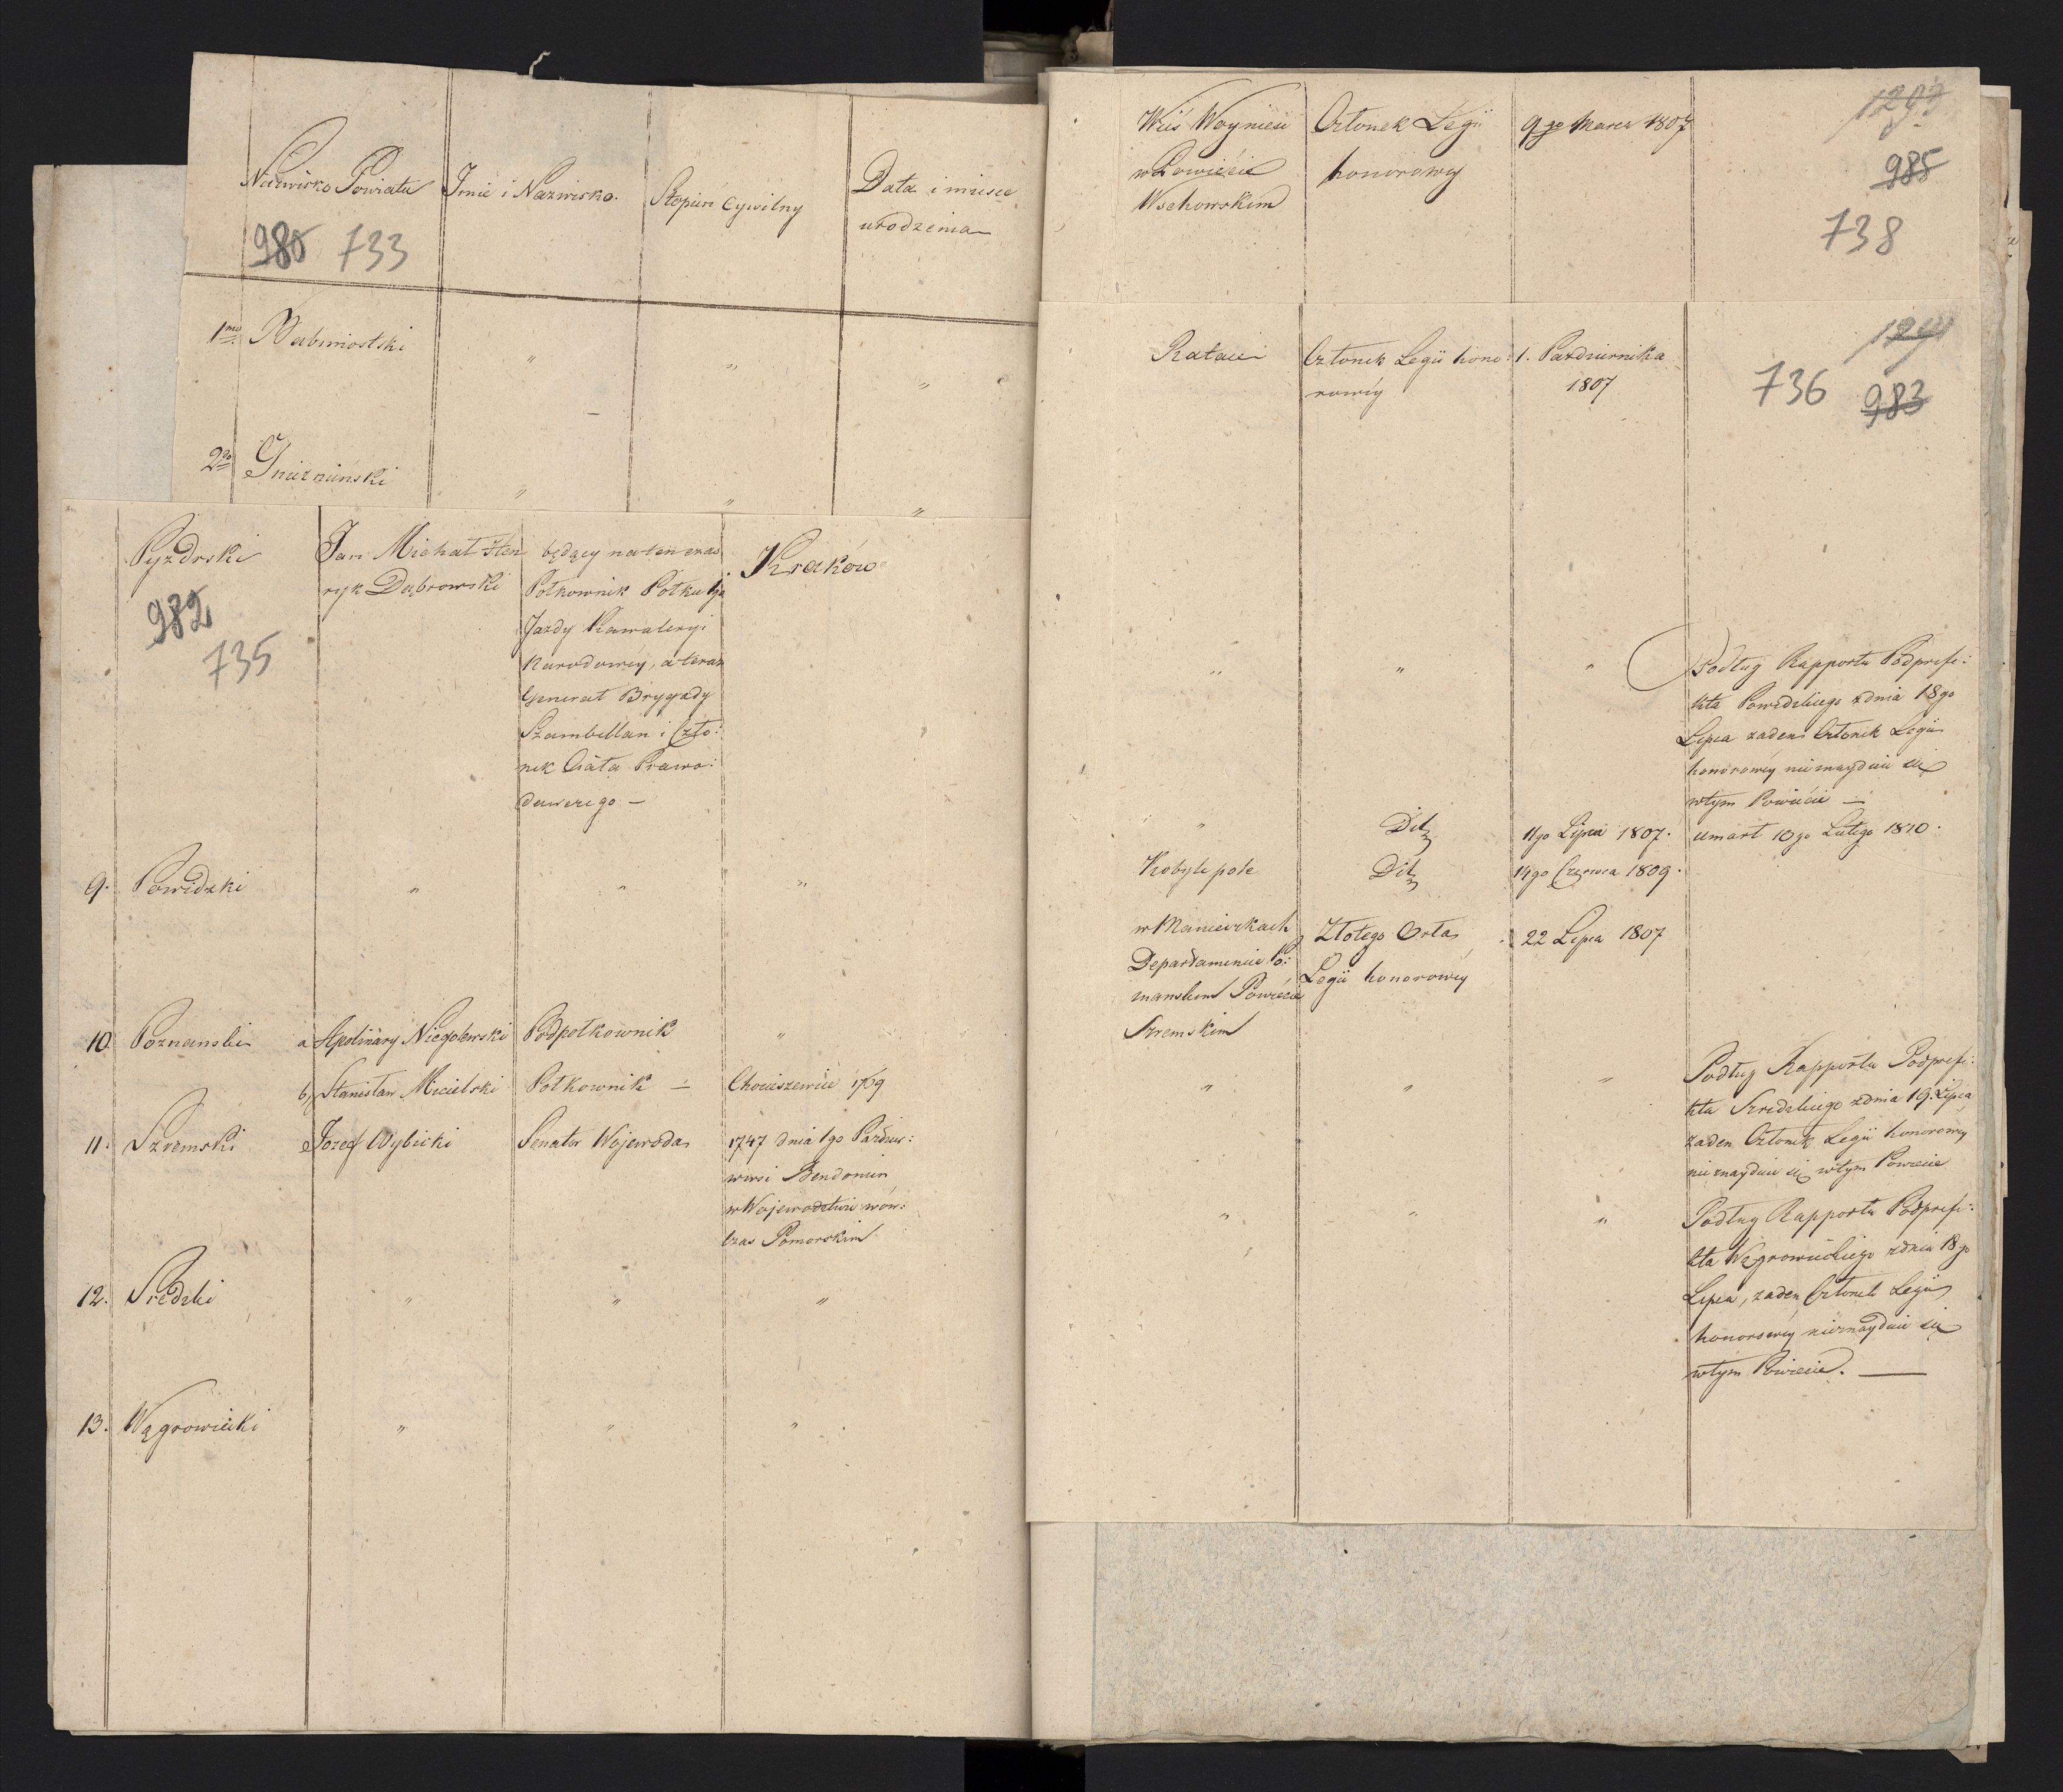 Nazwisko Powiatu
Imie i Nazwisko.
Stopień Cywilny
Data i miesce
urodzenia
980 733
1mo Babimostski
" " "
2do Gnieznieński
" " "
Pyzdrski
982
735
Jan Michał Hen
ryk Dąbrowski
będący na ten czas
Półkownik Półku
Jazdy Kawaleryi
Narodowéy, a teraz
Generał Brygady
Szambellan i Czło:
nek Ciała Prawo:
dawczego —
Kraków
9. Powidzki " " "
10. Poznanski a Apolinary Niegolewski Podpołkownik "
b, Stanisław Mielski Połkownik — Chociszewice 1769
11. Szremski Jozef Wybicki Senator Wojewoda 1747 dnia 1go Paźdier:
w wsi Bendomin
w Wojewodztwie wów:
czas Pomorskim
12. Sredzki " " "
13. Wągrowiecki " " "
Wieś Woyniesc
w Powiecie
Wschowskim
Członek Legii
honorowy
9go Marca 1807
1293
985
738
Rataie
Członek Legii hono:
rowéy
1. Pazdziernika
1807
736 983
" " "
Podług Rapportu Podprefe:
kta Powidzkiego zdnia 18go
Lipca zaden Członek Legii
honorowéy nieznayduie się
wtym Powiecie —
" Dito 11go Lipca 1807. umarł 10go Lutego 1810.
Kobyle pole Dito 14go Czerwca 1809.
w Manieczkach
Departamencie Po:
znanskim Powiecie
Szremskim
Złotego Orła
Legii honorowéy
22 Lipca 1807
" " "
Podług Rapportu Podprefe:
kta Szredzkiego zdnia 19. Lipca
zaden Członek Legii honorowéy
nieznayduie się wtym Powiecie
" " "
Podług Rapportu Podprefe:
kta Wągrowieckiego zdnia 18go
Lipca, zaden Członek Legii
honorowéy nieznayduie się
wtym Powiecie. —